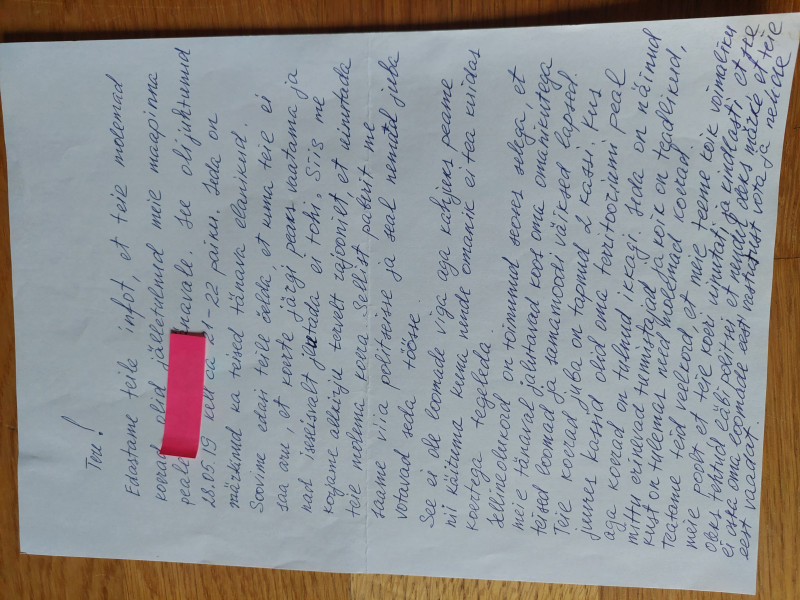 Teu!
Edastame teile infot, et teie mõlemad
koerad olid jälletulnuid meie maapinna
peale navale. See oli juhtunud
28.05.19 kell ca 21-22 paiku. Seda on
märkinud ka teised tänava elanikud.
Soovime edasi teile öelda, et kuna teie ei
saa aru, et koerte järgi peaks vaatama ja
nad iseseisvalt jalutada ei tohi. Siis me
korjame allkirju tervelt rajoonist, et uinutada
teie mõlema koera. Sellist paberit me
saame viia politseisse ja seal nemad juba
võtavad seda töösse.
See ei ole loomade viga aga kahjuks peame
nii käituma kuna nende omanik ei tea kuidas
koertega tegeleda
Selline olukord on toimunud seoses sellega, et
meie tänaval jalutavad koos oma omanikutega
teised loomad ja samamoodi väiksed lapsed.
Teie koerad juba on tapnud 2 kassi. Kus
juures kassid olid oma territooriumi peal
aga koerad on tulnud ikkagi. Seda on näinud
mittu erinevad tunnistajad ja kõik on teadlikud,
kust on tulemas need mõlemad koerad.
teatame teid veelkord, et meie teeme kõik võimaliku
meie poolt et teie koeri uinutati ja kindlasti et see
oleks tehtud läbi politsei et nendil oleks märke et teie
ei oska oma loomade eest vastutust võta ja nekele
eest vaadat.